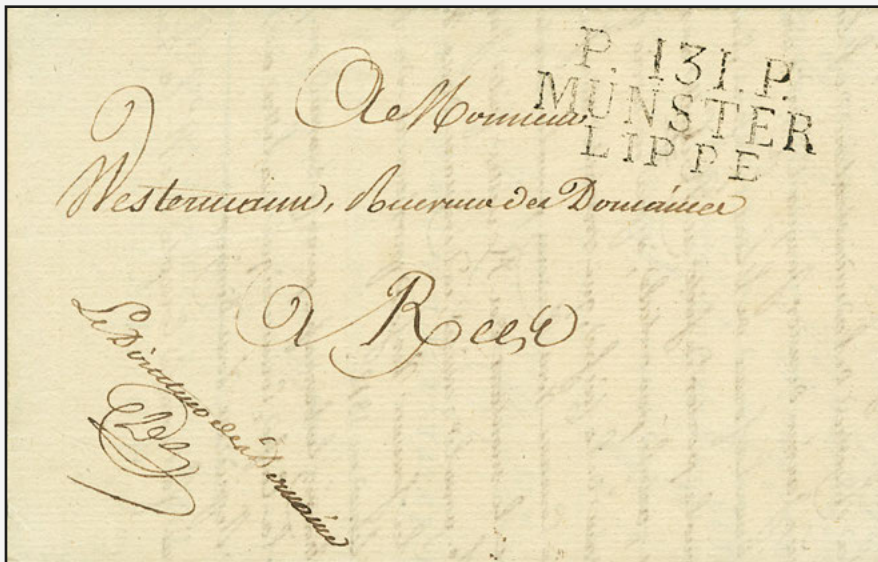 P. 131. P.
MÜNSTER
LIPPE
A Monsieur
Westermann, Receveur des Domaines
A Rees
Le Directeur des Domaines